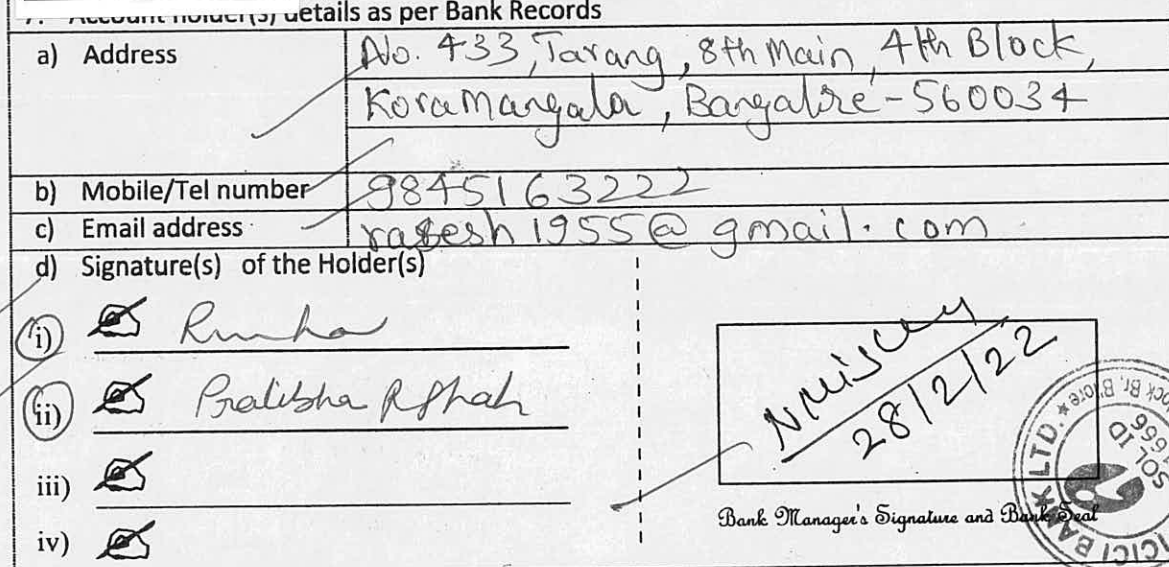 7. Account holder(s) details as per Bank Records
a) Address No. 433, Tarang, 8th Main, 4th Block,
Koramangala, Bangalore - 560034
b) Mobile/Tel number 9845163222
c) Email address @gmail.com
d) Signature(s) of the Holder(s)
i)
ii) Pratibha R Shah
iii)
iv)
28/2/22
Bank Manager's Signature and Bank Seal
ICICI BANK LTD. ★
SOL ID